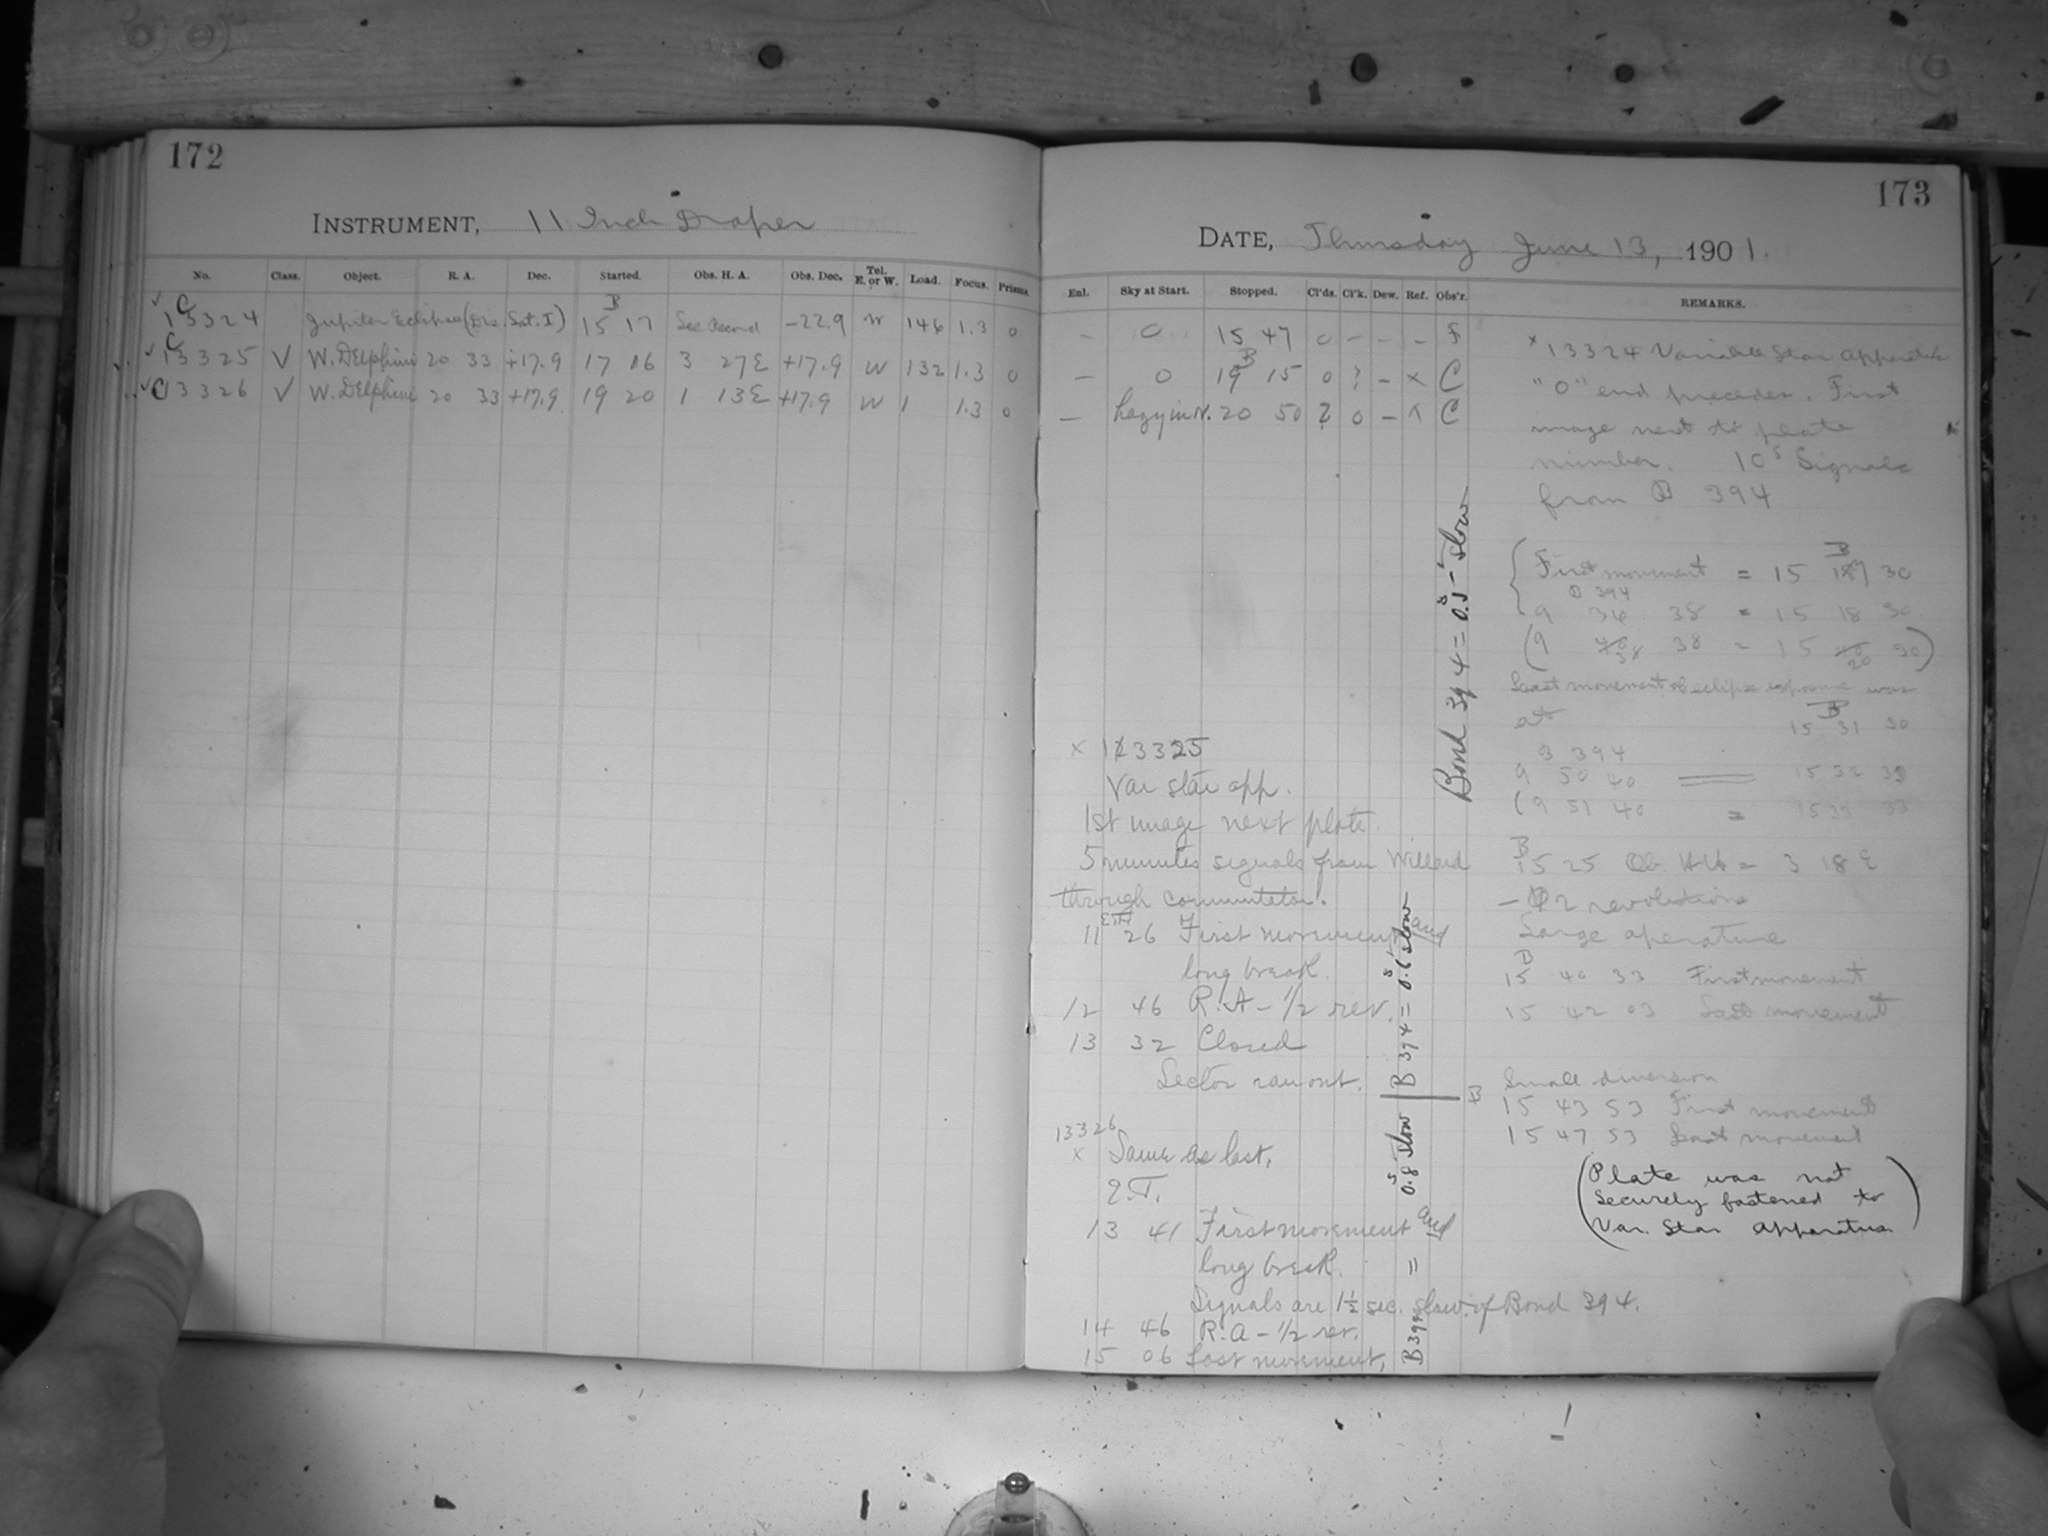 172
INSTRUMENT, 11 Inch Draper
No. Class. Object. R. A. Dec. Started. Obs. H. A. Obs. Dec. Tel. E. or W. Load. Focus. Prisms.
C 13324 Jupiter Eclipse (Dis. Sat. I) B 15 17 See Record -22.9 W 146 1.3 0
C 13325 V W. Delphini 20 33 +17.9 17 16 3 27E +17.9 W 132 1.3 0
C 13326 V W. Delphini 20 33 +17.9 19 20 1 13E +17.9 W 1 1.3 0
173
DATE, Thursday June 13, 1901.
Enl. Sky at Start. Stopped. Cl'ds. Cl'k. Dew. Ref. Obs'r. REMARKS.
– 0 15 47 0 – – – F
– 0 B 19 15 0 ? – x C
– hazy in N. 20 50 2 0 – x C
x 13324 Variable Star Apparatus
"0" end precedes. First
image next to plate
number. 10s Signals
from B 394
First movement = 15 17 30
B 394
9 36 38 = 15 18 30
(9 38 38 = 15 20 30)
Last movement of eclipse exposure was
at B 15 31 30
B 394
9 50 40 = 15 32 33
(9 51 40 = 15 33 33
B
15 25 Ob. HA = 3 18 E
– 2 revolutions
Large aperature
B
15 40 33 First movement
15 42 03 Last movement
Small diversion
B 15 43 53 First movement
15 47 53 Last movement
(Plate was not
securely fastened to
Var. Star Apparatus)
Bond 394 = 0.5s slow
x 13325
Var star app.
1st image next plate.
5 minutes signals from Willard
through commutator.
11 26 First movement and
long break.
12 46 R.A – 1/2 rev.
13 32 Closed
Sector ran out.
B 394 = 0.6s slow
13326
x Same as last.
13 41 First movement and
long break.
Signals are 1½ sec. slow of Bond 394.
14 46 R.A – 1/2 rev.
15 06 Last movement,
B 394 = 0.8s slow